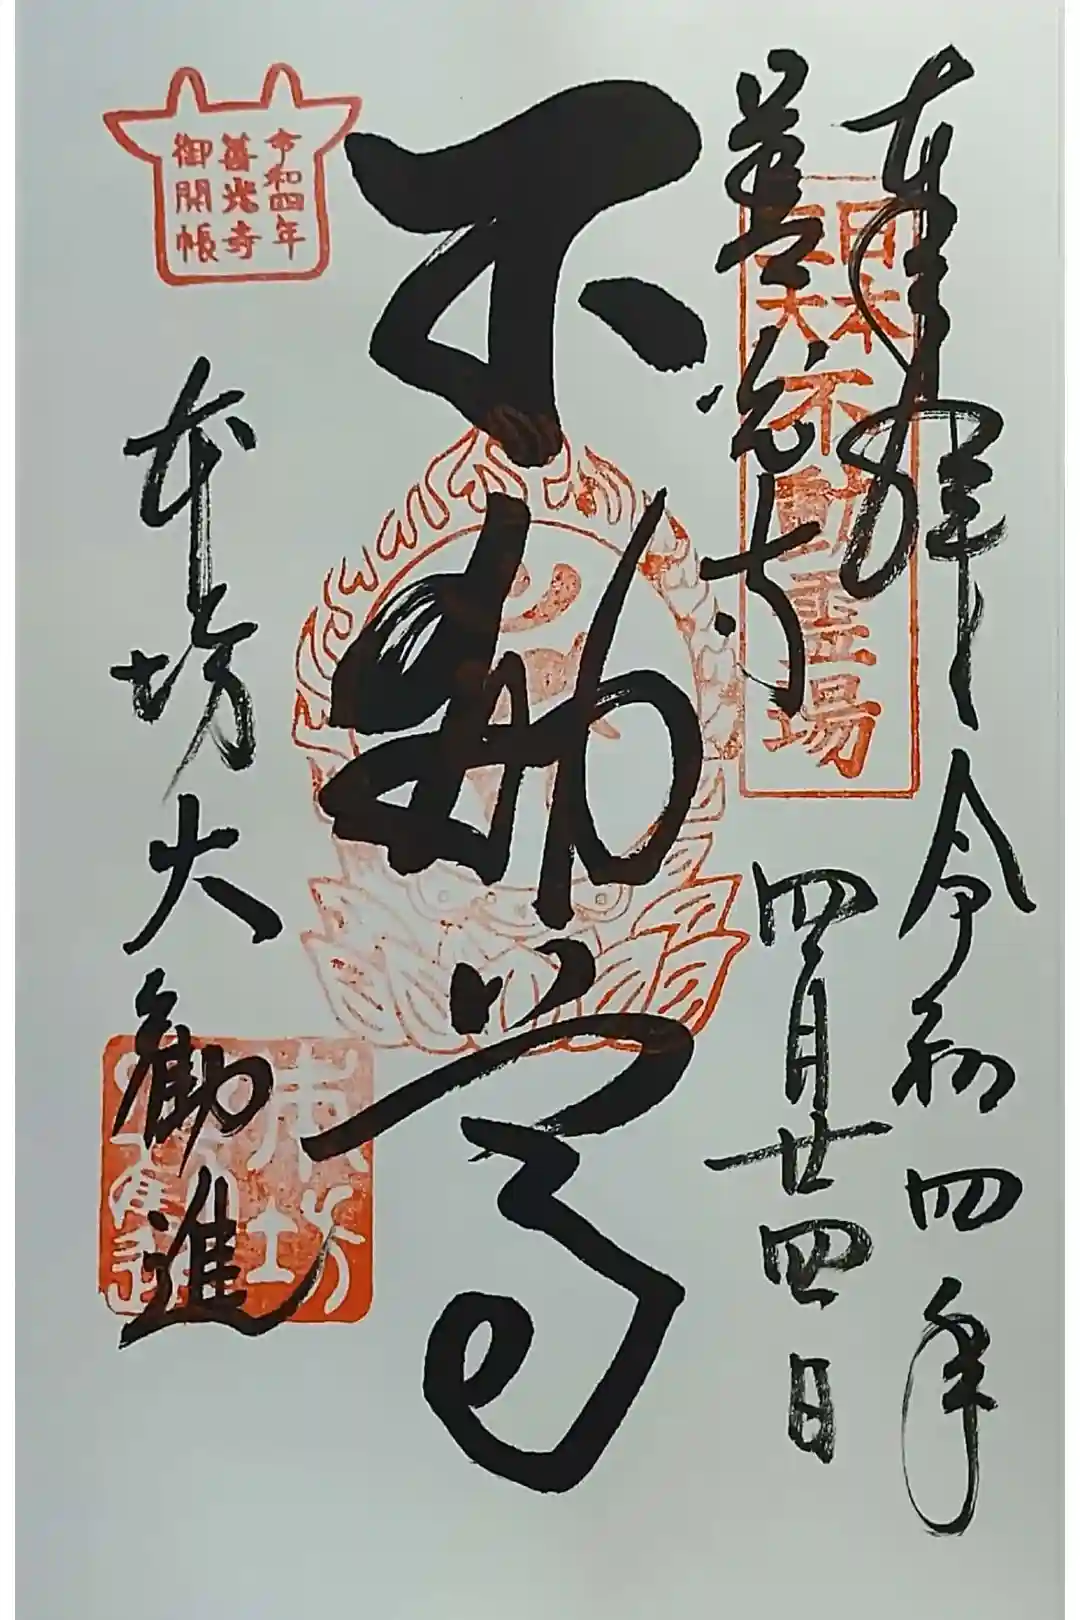 奉拝 令和四年
善光寺 四月廿四日
日本
三大
不動霊場
不動尊
令和四年
善光寺
御開帳
本坊大勧進
本坊
大勧進